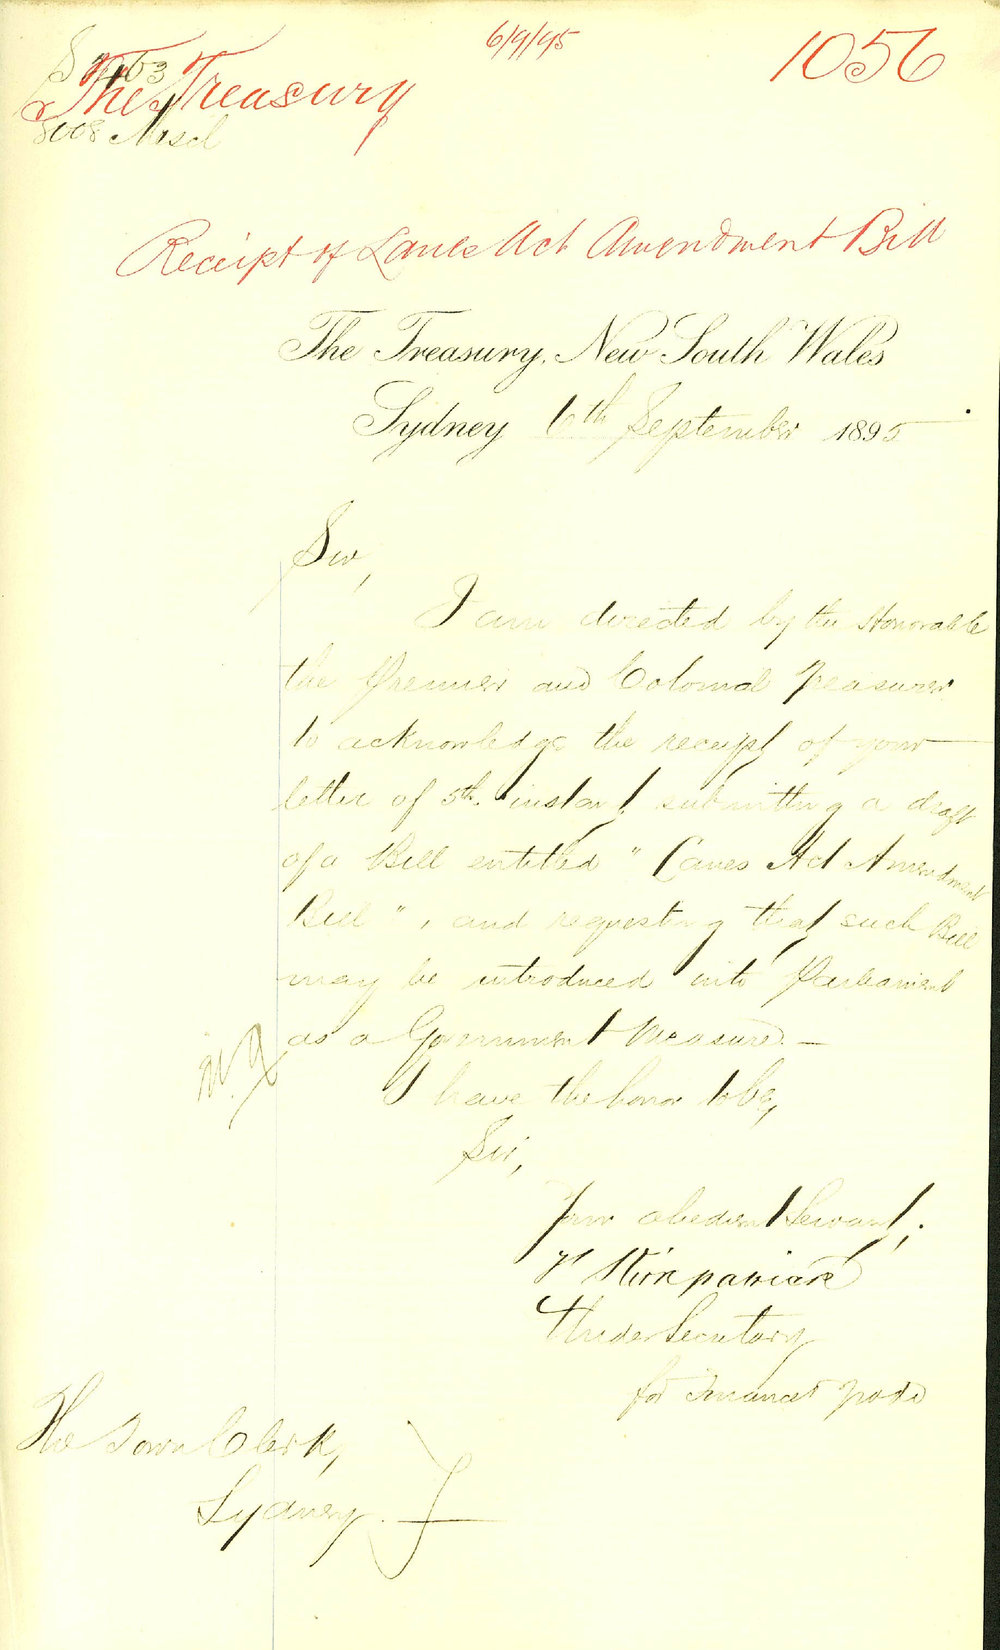 6/9/95
1056
The Treasury
8008 Miscl
Receipt of Lanes Act Amendment Bill
The Treasury, New South Wales
Sydney 6th September 1895
Sir,
I am directed by the Honorable
the Premier and Colonial Treasurer
to acknowledge the receipt of your
letter of 5th. instant submitting a draft
of a Bill entitled "Lanes Act Amendment
Bill", and requesting that such Bill
may be introduced into Parliament
as a Government Measure.—
I have the honor to be,
Sir,
Your obedient Servant,
F Kirkpatrick
Under Secretary
for Finance & Trade
The Town Clerk,
Sydney.